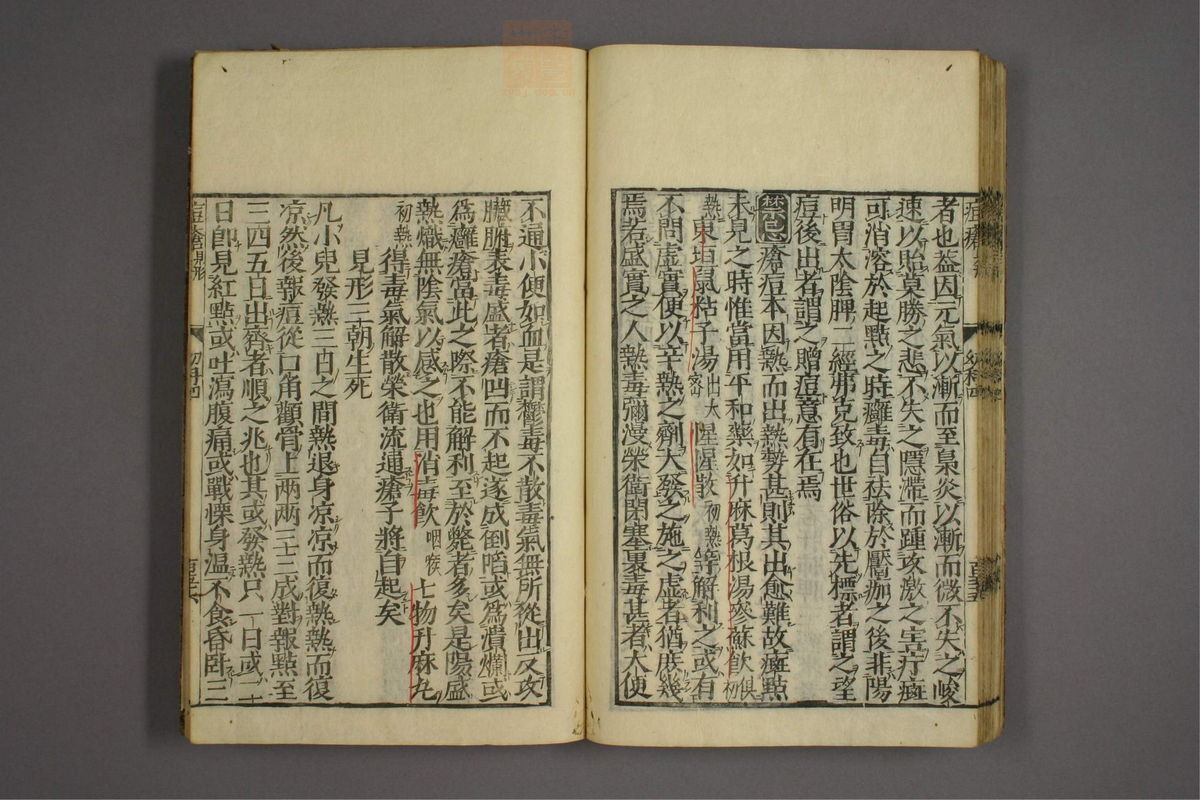 者也蓋因元氣以漸而至梟炎以漸而微不失之峻
速以貽莫勝之悲不失之隱滯而踵攻激之害疔癍
可消溶於起點之時癰毒自祛除於靨痂之後非陽
明胃太陰脾二經弗克致也世俗以先標者謂之望
痘後出者謂之贈痘意有在焉
禁忌 瘡痘本因熱而出熱勢甚則其出愈難故癍點
未見之時惟當用平和藥如升麻葛根湯參蘇飲俱初
熱東垣鼠粘子湯出大密惺惺散初熱等解利之或有
不問虛實便以辛熱之劑大發之施之虛者猶庶幾
焉若盛實之人熱毒彌漫榮衛閉塞裹毒甚者大便
不通小便如血是謂鬱毒不散毒氣無所從出又攻
臟腑表毒盛者瘡凹而不起遂成倒陷或為潰爛或
為癰瘡當此之際不能解利至於斃者多矣是陽盛
熱熾無陰氣以感之也用消毒飲咽喉七物升麻丸
初熱得毒氣解散榮衛流通瘡子將自起矣
見形三朝生死
凡小兒發熱三日之間熱退身凉凉而復熱熱而復
凉然後報痘從口角顴骨上兩兩三三成對報點至
三四五日出齊者順之兆也其或發熱只一日或二
日即見紅點或吐瀉腹痛或戰慄身溫不食昏卧三
痘瘡見形
幼科四
百五十六
痘瘡
幼科四
百五十五